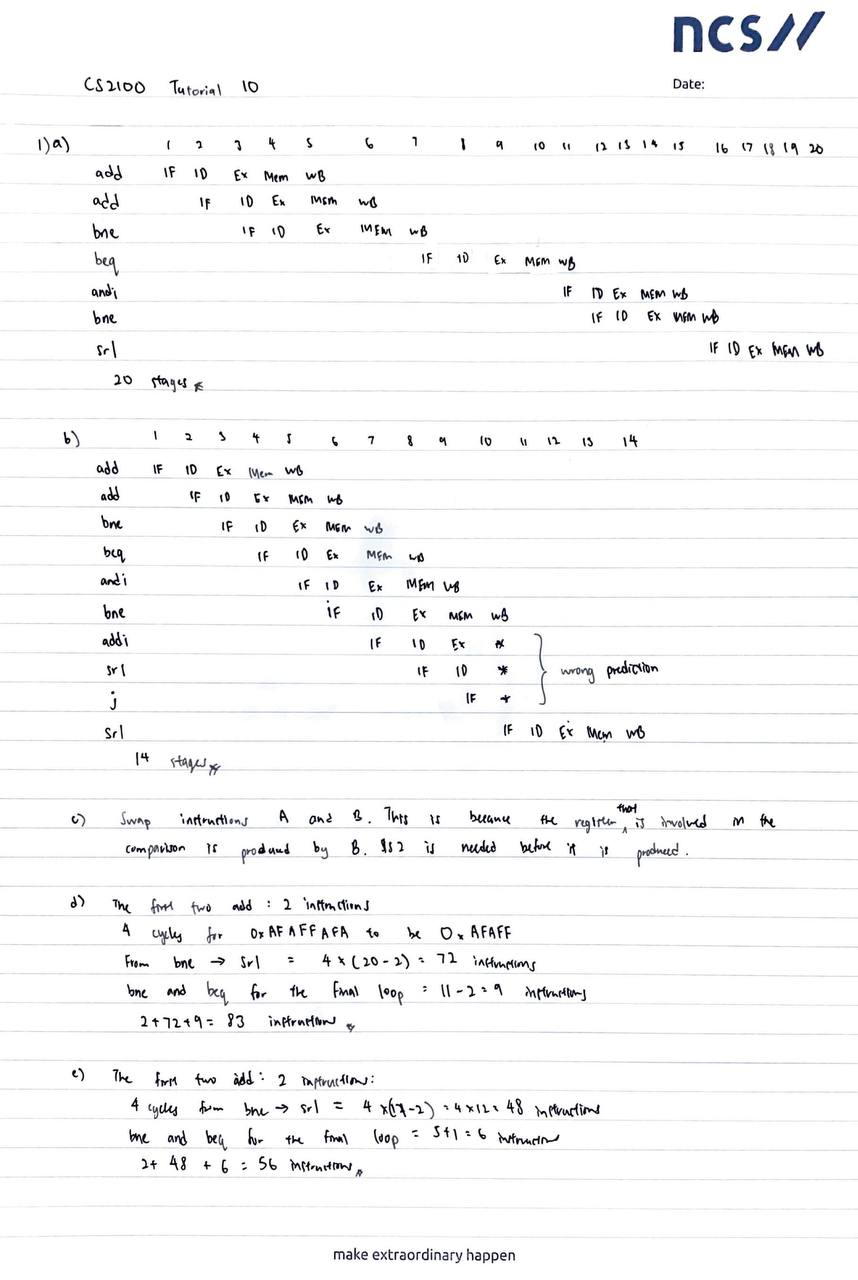 ncs//
CS2100 Tutorial 10 Date:
1)a) 1 2 3 4 5 6 7 8 9 10 11 12 13 14 15 16 17 18 19 20
add IF ID Ex Mem WB
add IF ID Ex MEM WB
bne IF ID Ex MEM WB
beq IF ID Ex MEM WB
andi IF ID Ex MEM WB
bne IF ID Ex MEM WB
srl IF ID Ex MEM WB
20 stages *
b) 1 2 3 4 5 6 7 8 9 10 11 12 13 14
add IF ID Ex Mem WB
add IF ID Ex MEM WB
bne IF ID Ex MEM WB
beq IF ID Ex MEM WB
andi IF ID Ex MEM WB
bne IF ID Ex MEM WB
addi IF ID Ex *
srl IF ID * wrong prediction
j IF *
srl IF ID Ex Mem WB
14 stages *
c) Swap instructions A and B. This is because the register that is involved in the
comparison is produced by B. $s2 is needed before it is produced.
d) The first two add : 2 instructions
4 cycles for 0xAFAFFAFA to be 0xAFAFF
From bne → srl = 4 × (20-2) = 72 instructions
bne and beq for the final loop = 11-2 = 9 instructions
2+72+9 = 83 instructions *
e) The first two add : 2 instructions:
4 cycles from bne → srl = 4 × (14-2) = 4×12 = 48 instructions
bne and beq for the final loop = 5+1 = 6 instruction
2+ 48 + 6 = 56 instructions *
make extraordinary happen